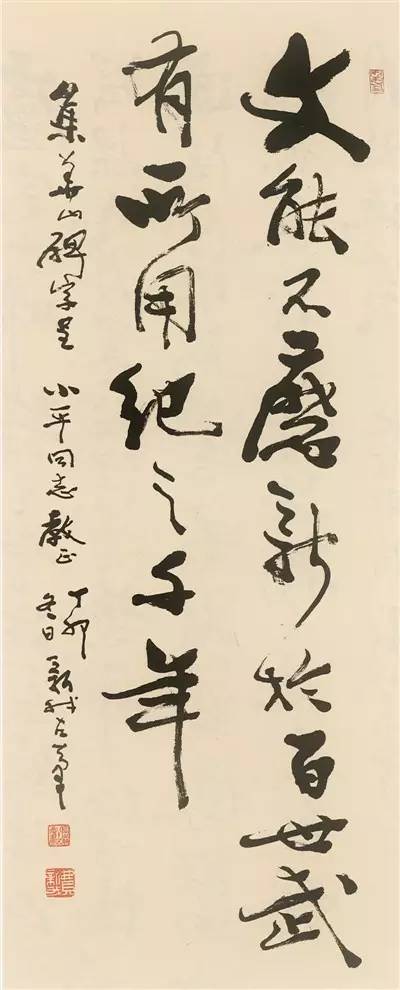 文能不磨新於百世武
有所用紀之千年
集華山碑字呈
小平同志教正
丁卯
冬日